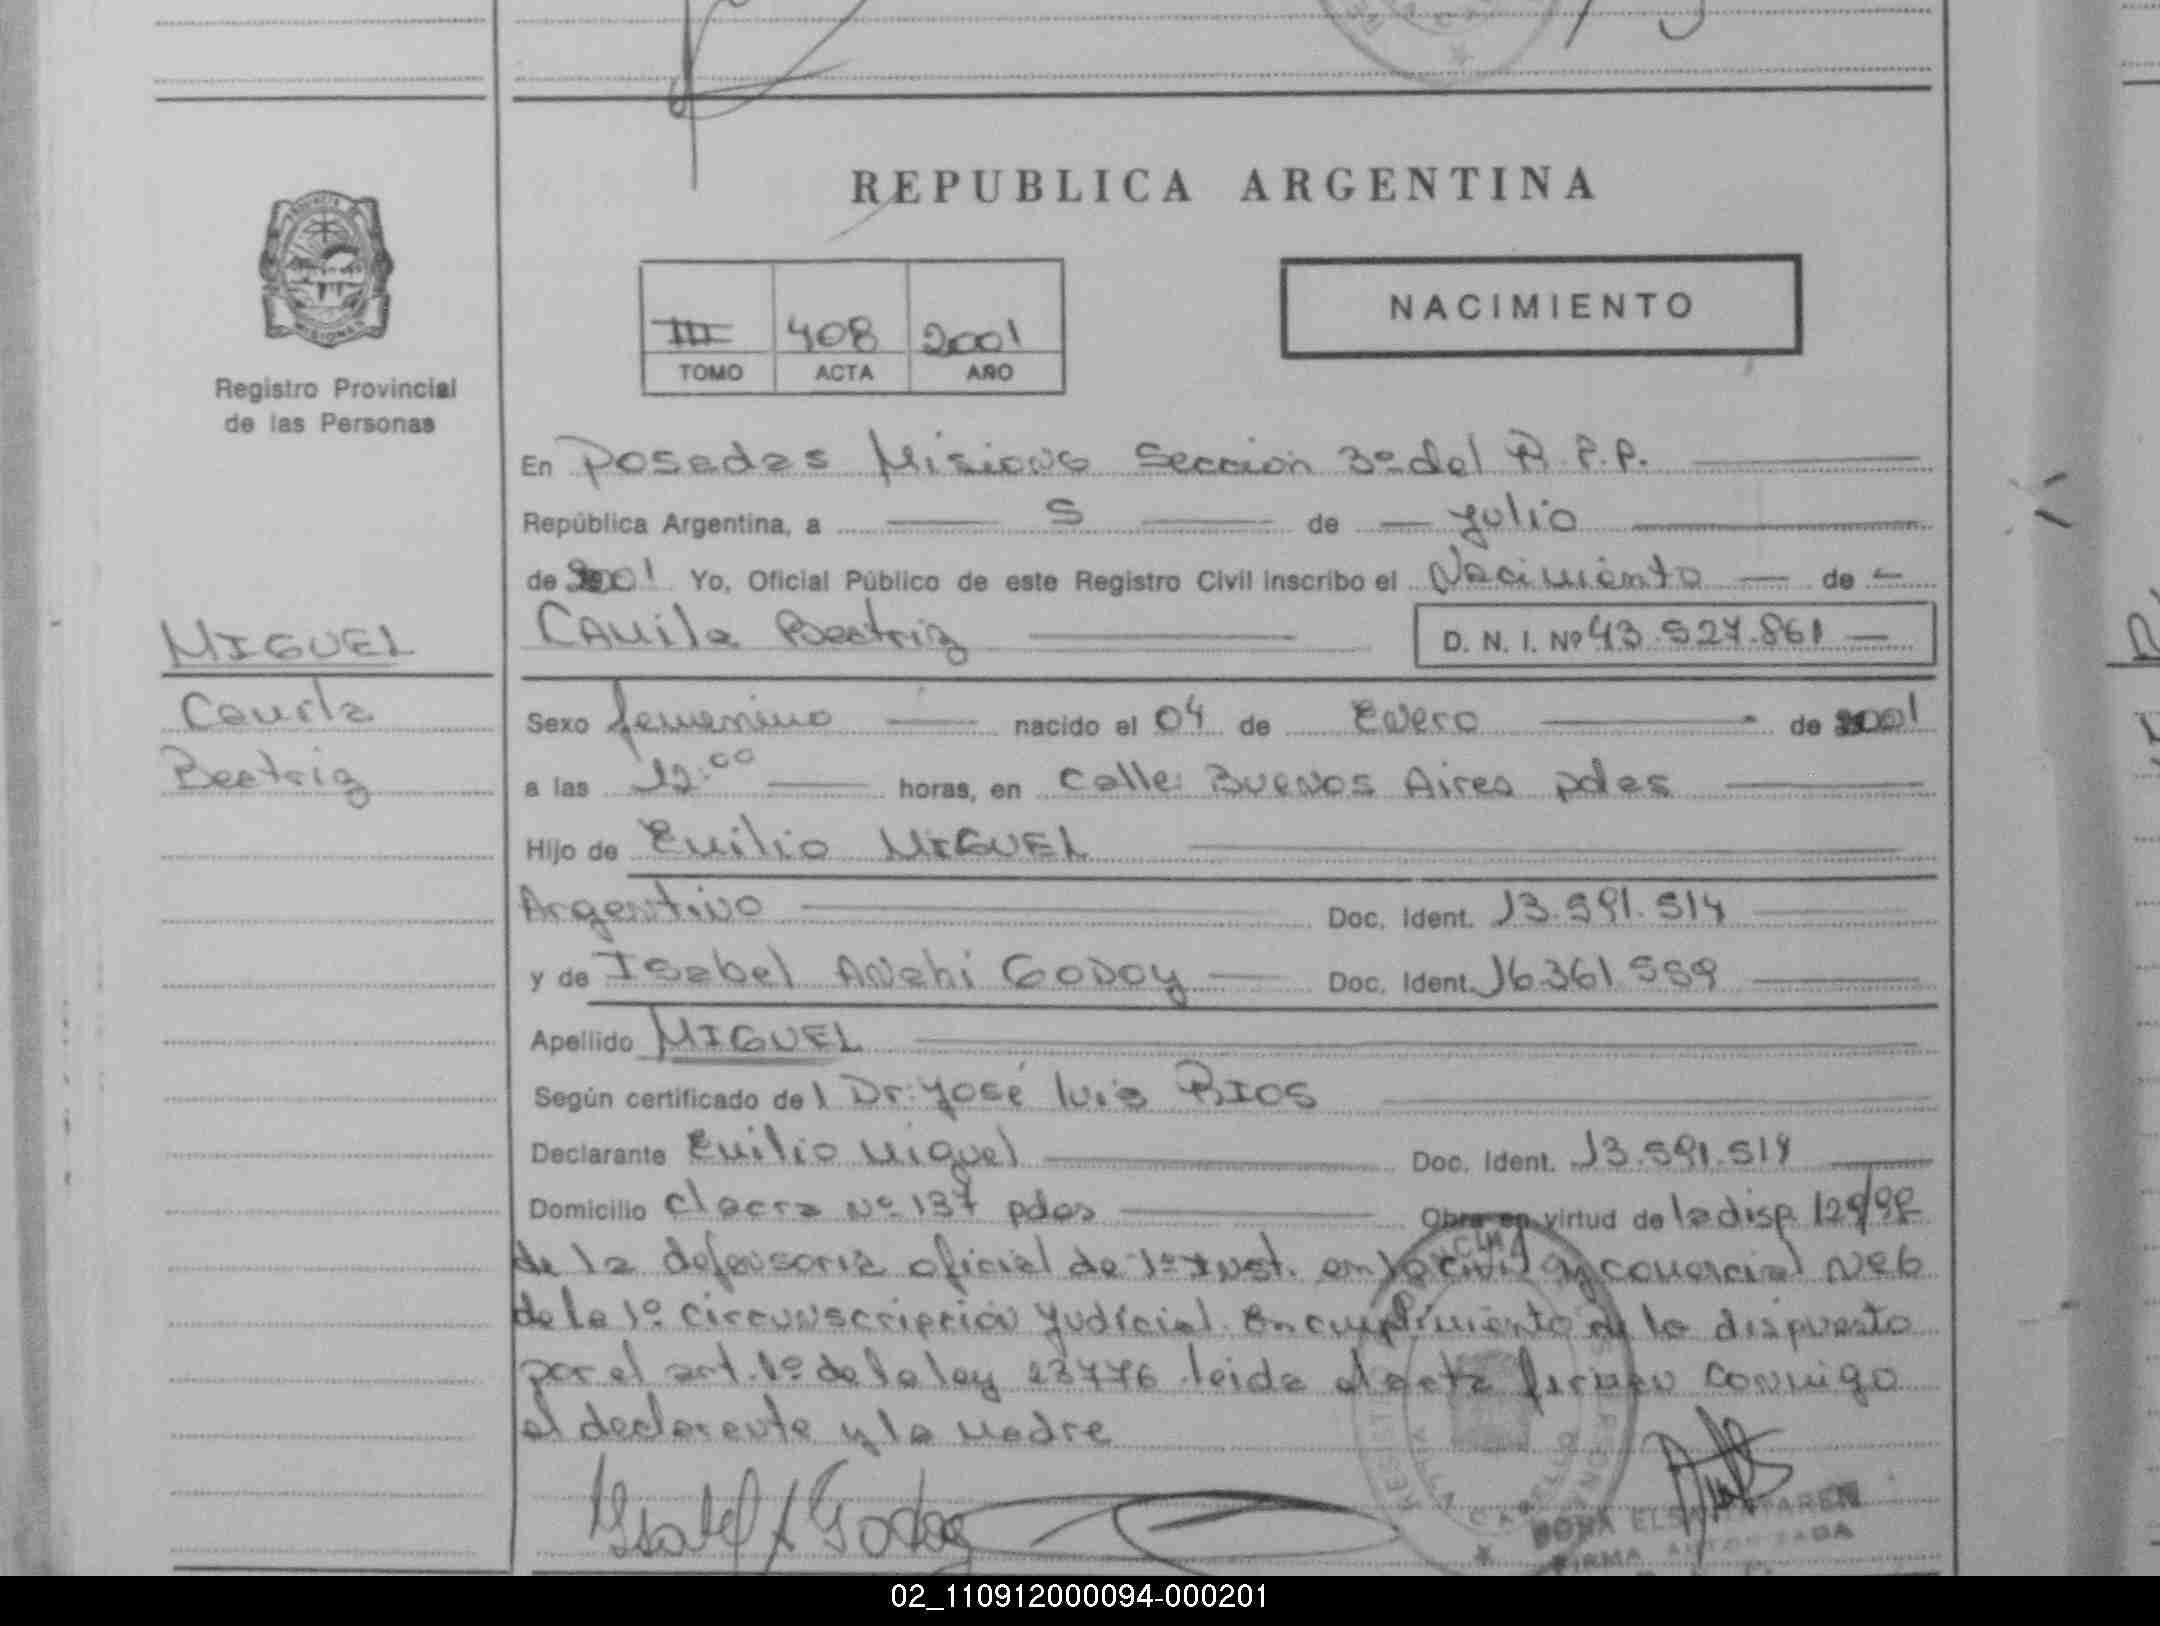 REPUBLICA ARGENTINA
III 408 2001
TOMO ACTA AÑO
NACIMIENTO
Registro Provincial
de las Personas
En Posadas Misiones Sección 3º del R.P.P.
República Argentina, a 5 de Julio
de 2001 Yo, Oficial Público de este Registro Civil inscribo el Nacimiento de
Camila Beatriz D. N. I. Nº 43.527.861
MIGUEL
Camila
Beatriz
Sexo femenino nacido el 04 de Enero de 2001
a las 12:00 horas, en calle: Buenos Aires pdas
Hijo de Emilio MIGUEL
Argentino Doc. Ident. 13.591.514
y de Isabel Anahi GODOY Doc. Ident. 16.361.559
Apellido MIGUEL
Según certificado del Dr. José Luis RIOS
Declarante Emilio Miguel Doc. Ident. 13.591.514
Domicilio chacra Nº 137 pdas Obra en virtud de la disp.
de la defensoria oficial de 1º Inst. en lo civil y comercial Nº 6
de la 1º circunscripción Judicial. En cumplimiento de lo dispuesto
por el art. 1º de la ley 23776 leida el acta firman conmigo
el declarante y la madre
Isabel A Godoy
VILLA CABELLO
FIRMA AUTORIZADA
02_110912000094-000201